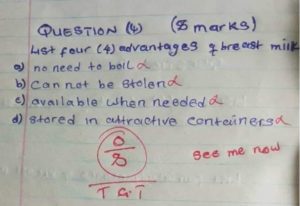 QUESTION (4) (8 marks)
List four (4) advantages of breast milk
a) no need to boil
b) Can not be stolen
c) available when needed
d) stored in attractive containers
0
8
See me now
T G.T